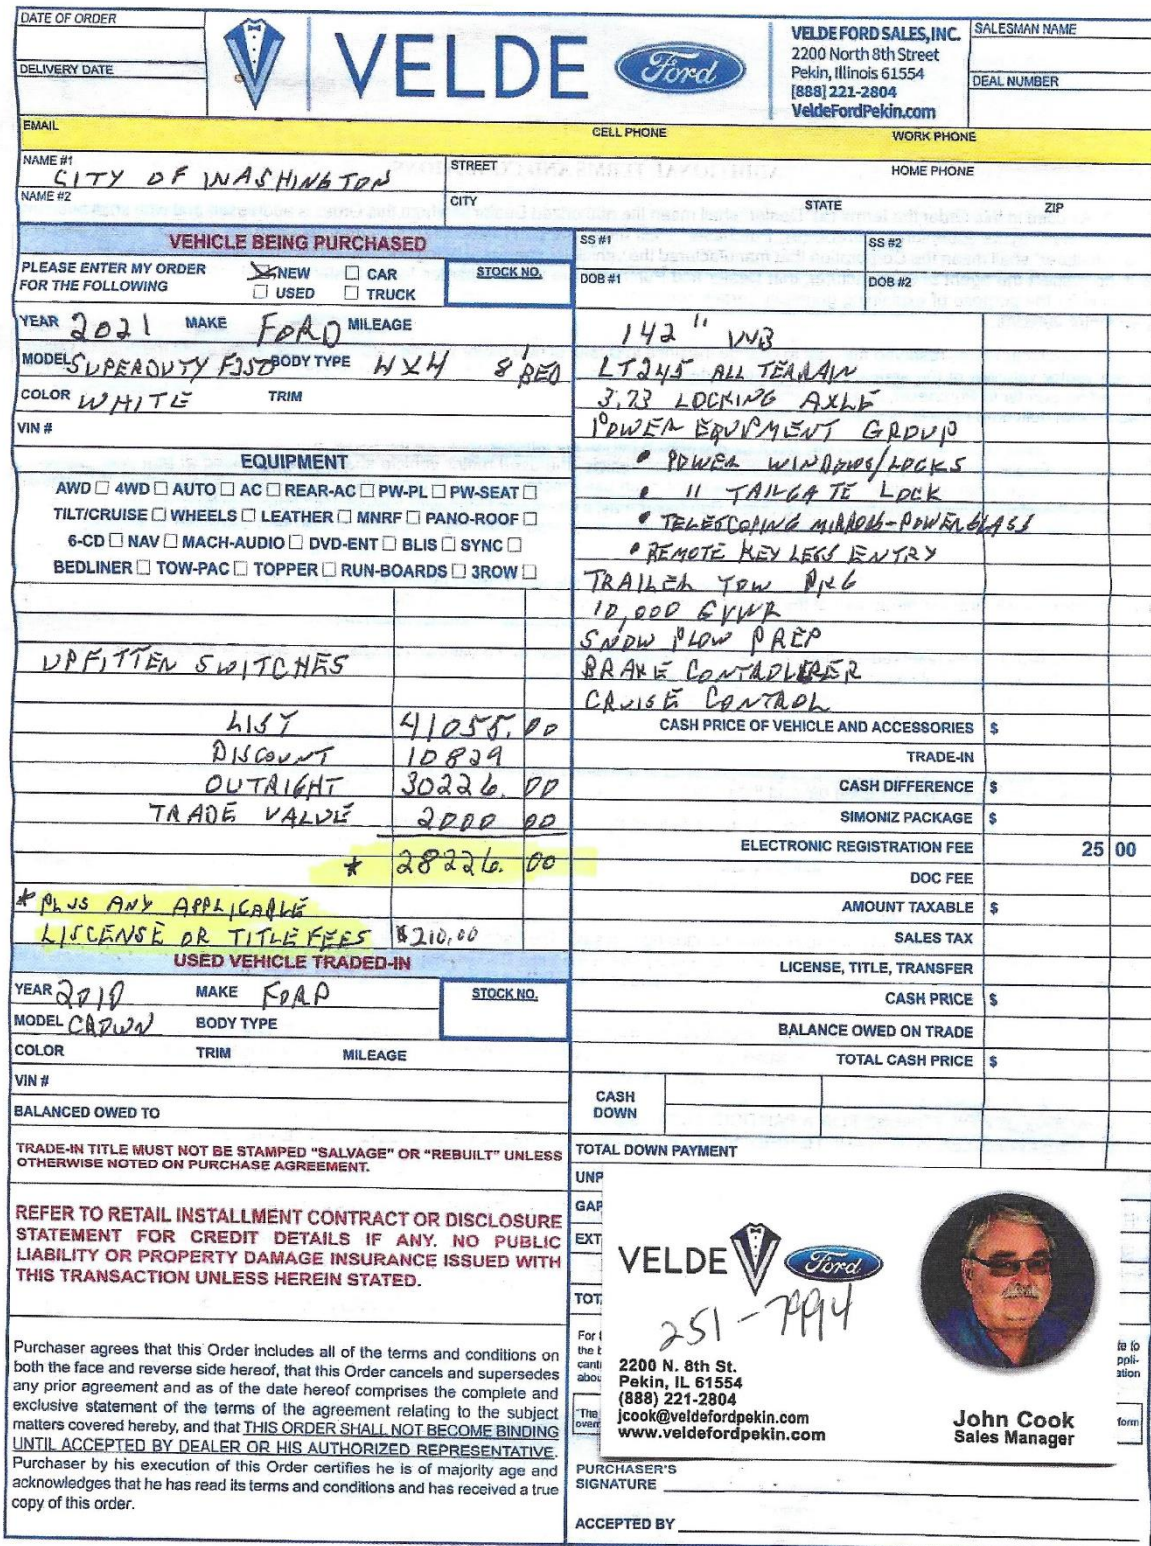 DATE OF ORDER
DELIVERY DATE
VELDE Ford
VELDE FORD SALES, INC.
2200 North 8th Street
Pekin, Illinois 61554
[888] 221-2804
VeldeFordPekin.com
SALESMAN NAME
DEAL NUMBER
EMAIL CELL PHONE WORK PHONE
NAME #1 CITY OF WASHINGTON STREET HOME PHONE
NAME #2 CITY STATE ZIP
VEHICLE BEING PURCHASED
PLEASE ENTER MY ORDER FOR THE FOLLOWING
NEW CAR
USED TRUCK
STOCK NO.
YEAR 2021 MAKE FORD MILEAGE
MODEL SUPERDUTY F350 BODY TYPE 4X4 8' BED
COLOR WHITE TRIM
VIN #
EQUIPMENT
AWD ☐ 4WD ☐ AUTO ☐ AC ☐ REAR-AC ☐ PW-PL ☐ PW-SEAT ☐
TILT/CRUISE ☐ WHEELS ☐ LEATHER ☐ MNRF ☐ PANO-ROOF ☐
6-CD ☐ NAV ☐ MACH-AUDIO ☐ DVD-ENT ☐ BLIS ☐ SYNC ☐
BEDLINER ☐ TOW-PAC ☐ TOPPER ☐ RUN-BOARDS ☐ 3ROW ☐
UPFITTEN SWITCHES
LIST 41055.00
DISCOUNT 10829
OUTRIGHT 30226.00
TRADE VALUE 2000 00
* 28226.00
* PLUS ANY APPLICABLE
LISCENSE OR TITLE FEES $210.00
USED VEHICLE TRADED-IN
YEAR 2010 MAKE FORD STOCK NO.
MODEL CROWN BODY TYPE
COLOR TRIM MILEAGE
VIN #
BALANCED OWED TO
TRADE-IN TITLE MUST NOT BE STAMPED "SALVAGE" OR "REBUILT" UNLESS
OTHERWISE NOTED ON PURCHASE AGREEMENT.
REFER TO RETAIL INSTALLMENT CONTRACT OR DISCLOSURE
STATEMENT FOR CREDIT DETAILS IF ANY. NO PUBLIC
LIABILITY OR PROPERTY DAMAGE INSURANCE ISSUED WITH
THIS TRANSACTION UNLESS HEREIN STATED.
Purchaser agrees that this Order includes all of the terms and conditions on
both the face and reverse side hereof, that this Order cancels and supersedes
any prior agreement and as of the date hereof comprises the complete and
exclusive statement of the terms of the agreement relating to the subject
matters covered hereby, and that THIS ORDER SHALL NOT BECOME BINDING
UNTIL ACCEPTED BY DEALER OR HIS AUTHORIZED REPRESENTATIVE.
Purchaser by his execution of this Order certifies he is of majority age and
acknowledges that he has read its terms and conditions and has received a true
copy of this order.
SS #1 SS #2
DOB #1 DOB #2
142" WB
LT245 ALL TERRAIN
3.73 LOCKING AXLE
POWER EQUPMENT GROUP
• POWER WINDOWS/LOCKS
• " TAILGATE LOCK
• TELESCOPING MIRRORS-POWER GLASS
• REMOTE KEY LESS ENTRY
TRAILER TOW PKG
10,000 GVWR
SNOW PLOW PREP
BRAKE CONTROLLER
CRUISE CONTROL
CASH PRICE OF VEHICLE AND ACCESSORIES $
TRADE-IN
CASH DIFFERENCE $
SIMONIZ PACKAGE $
ELECTRONIC REGISTRATION FEE 25 00
DOC FEE
AMOUNT TAXABLE $
SALES TAX
LICENSE, TITLE, TRANSFER
CASH PRICE $
BALANCE OWED ON TRADE
TOTAL CASH PRICE $
CASH DOWN
TOTAL DOWN PAYMENT
UNP
GAP
EXT
TOT
VELDE Ford
251-7994
2200 N. 8th St.
Pekin, IL 61554
(888) 221-2804
jcook@veldefordpekin.com
www.veldefordpekin.com
John Cook
Sales Manager
PURCHASER'S SIGNATURE
ACCEPTED BY